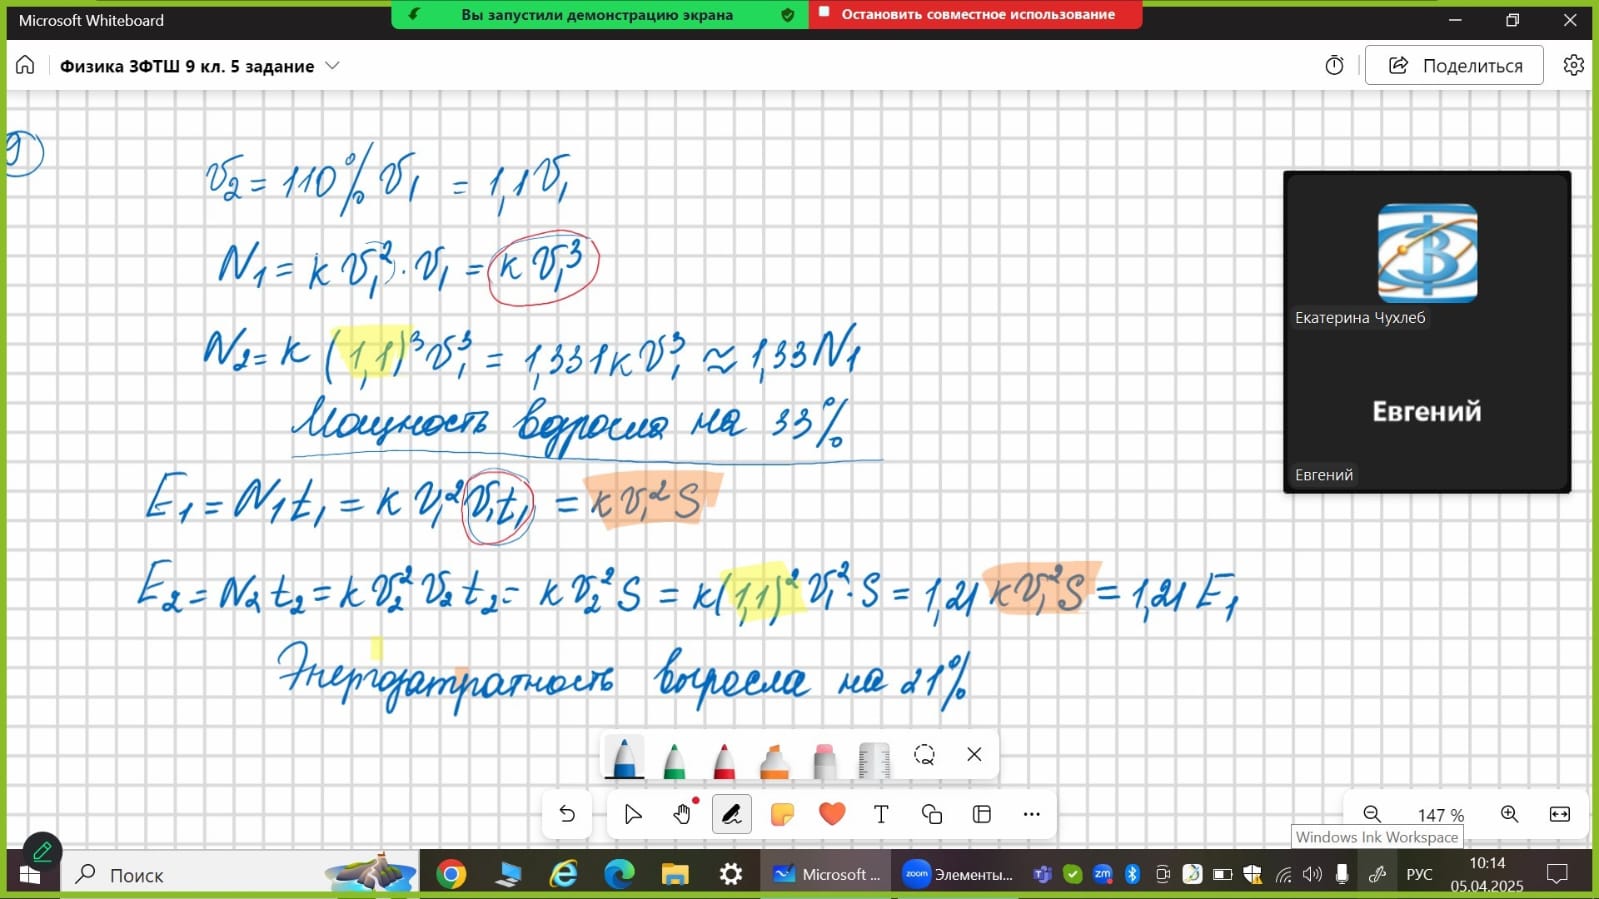 Microsoft Whiteboard
Вы запустили демонстрацию экрана
Остановить совместное использование
Физика ЗФТШ 9 кл. 5 задание
Поделиться
9
v₂ = 110% v₁ = 1,1 v₁
N₁ = k v₁² · v₁ = k v₁³
N₂ = k (1,1)³ v₁³ = 1,331 k v₁³ ≈ 1,33 N₁
Мощность возросла на 33%
E₁ = N₁ t₁ = k v₁² v₁ t₁ = k v₁² S
E₂ = N₂ t₂ = k v₂² v₂ t₂ = k v₂² S = k (1,1)² v₁² · S = 1,21 k v₁² S = 1,21 E₁
Энергозатратность выросла на 21%
Екатерина Чухлеб
Евгений
Евгений
T
147 %
Windows Ink Workspace
Поиск
Microsoft ...
zoom
Элементы...
zm
РУС
10:14
05.04.2025